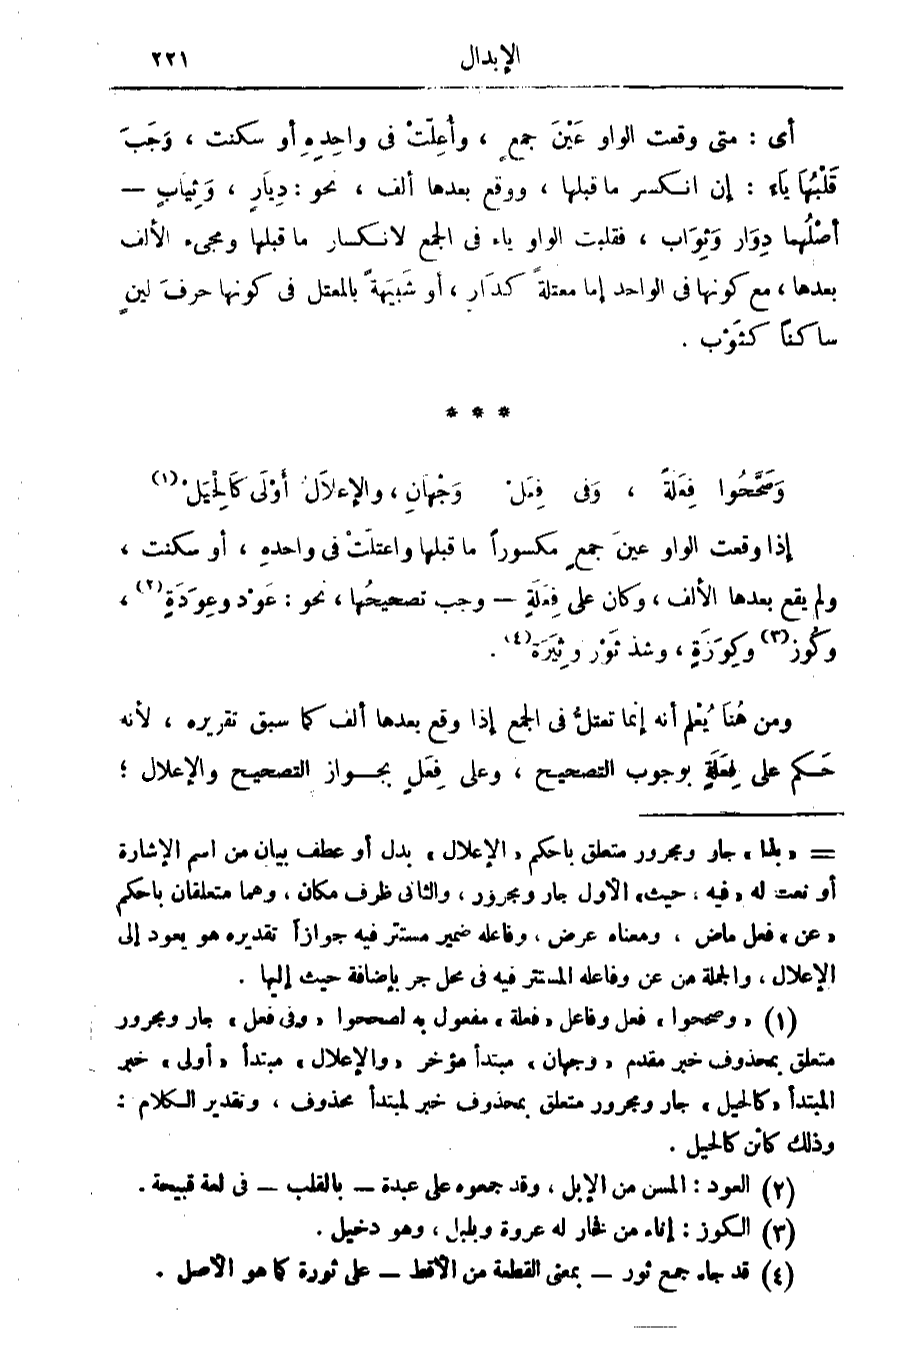 الإبدال ٢٢١
أى : متى وقعت الواو عَيْنَ جمعٍ ، وأُعِلّتْ فى واحِدِهِ أو سكنت ، وَجَبَ
قَلْبُهَا يَاء : إن انكسر ما قبلها ، ووقع بعدها ألف ، نحو : دِيَارٍ ، وَثِيَابٍ –
أصْلُهما دِوَار وَثِوَاب ، فقلبت الواو ياء فى الجمع لانكسار ما قبلها ومجىء الألف
بعدها ، مع كونها فى الواحد إما معتلةً كدَارٍ ، أو شَبِيهَةً بالمعتل فى كونها حرفَ لينٍ
ساكناً كثَوْب .
* * *
وَصَحَّحُوا فِعَلَةً ، وَفى فِعَلْ وَجْهَانِ ، والإعْلاَلُ أَوْلَى كَالْحِيَلْ (١)
إذا وقعت الواو عينَ جمعٍ مكسوراً ما قبلها واعتلّتْ فى واحدهِ ، أو سكنت ،
ولم يقع بعدها الألف ، وكان على فِعَلَةٍ – وجب تصحيحُها ، نحو : عَوْد وعِوَدَةٍ (٢) ،
وكُوز (٣) وكِوَزَةٍ ، وشذ ثَوْر وثِيَرَة (٤) .
ومن هُنَا يُعْلم أنه إنما تعتلُّ فى الجمع إذا وقع بعدها ألف كما سبق تقريره ، لأنه
حَكم على فِعَلَةٍ بوجوب التصحيح ، وعلى فِعَلٍ بجواز التصحيح والإعلال ؛
= « بذا » جار ومجرور متعلق باحكم « الإعلال » بدل أو عطف بيان من اسم الإشارة
أو نعت له « فيه ، حيث » الأول جار ومجرور ، والثانى ظرف مكان ، وهما متعلقان باحكم
« عن » فعل ماض ، ومعناه عرض ، وفاعله ضمير مستتر فيه جوازاً تقديره هو يعود إلى
الإعلال ، والجملة من عن وفاعله المستتر فيه فى محل جر بإضافة حيث إليها .
(١) « وصححوا » فعل وفاعل « فعلة » مفعول به لصححوا « وفى فعل » جار ومجرور
متعلق بمحذوف خبر مقدم « وجهان » مبتدأ مؤخر « والإعلال » مبتدأ « أولى » خبر
المبتدأ « كالحيل » جار ومجرور متعلق بمحذوف خبر لمبتدأ محذوف ، وتقدير الكلام :
وذلك كائن كالحيل .
(٢) العود : المسن من الإبل ، وقد جمعوه على عيدة – بالقلب – فى لغة قبيحة .
(٣) الكوز : إناء من فخار له عروة وبلبل ، وهو دخيل .
(٤) قد جاء جمع ثور – بمعنى القطعة من الأقط – على ثورة كما هو الأصل .